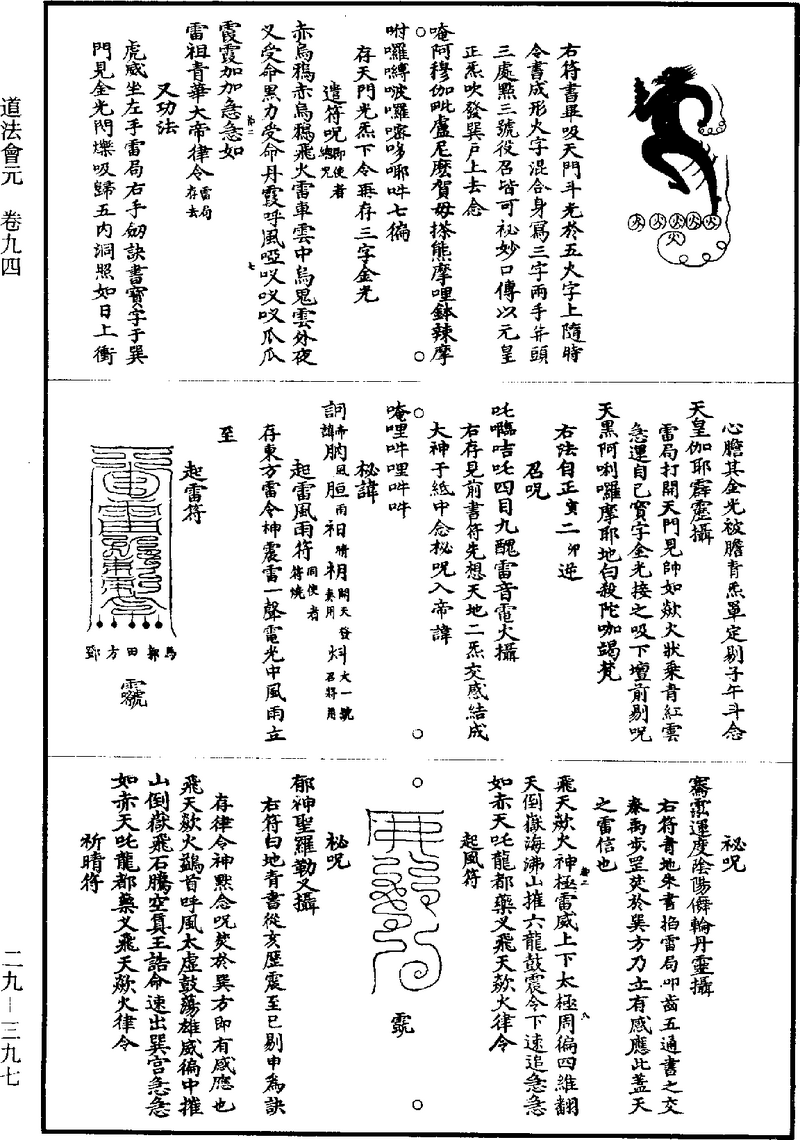 道法會元 卷九四
二九—三九七
火火火火火
火
右符書畢吸天門斗光於五火字上隨時
令書成形火字混合身寫三字兩手并頭
三處點三號役召皆可祕妙口傳以元皇
正炁吹發巽戶上去念
唵阿穆伽毗盧尼麽賀毋捺熊摩哩鉢辣摩
咐囉嚩啵囉嚓哆㖿吽七徧
存天門光炁下令再存三字金光
遣符呪即使者總咒
赤烏鴉赤烏鴉飛火雷車雲中烏鬼雲外夜
叉受命黑力受命丹霞呼風啞㕚㕚㕚爪爪
霞霞加加急急如
雷祖青華大帝律令雷局存去
又功法
虎威坐左手雷局右手劒訣書寶字于巽
門見金光閃爍吸歸五內洞照如日上衝
心膽其金光被膽青炁罩定剔子午斗念
天皇伽耶霹靂攝
雷局打開天門見帥如歘火狀乘青紅雲
急運自己寶字金光接之吸下壇前剔呪
天黑阿唎囉摩耶地白殺陀咖謁梵
右法自正寅二卯逆
召呪
吒嚪咭吒四目九醜雷音電火攝
右存見前書符先想天地二炁交感結成
大神于紙中念秘呪入帝諱
唵哩吽哩吽吽
秘諱
詷帝諱䏔風𦙶雨䄻晴䄵開天發奏用炓火一號召將用
起雷風雨符同使者符燒
存東方雷令神震雷一聲電光中風雨立
至
起雷符
馬郭田方鄧
祕呪
騫䨓運度陰陽僯輪丹靈攝
右符青地朱書掐雷局叩齒五通書之交
泰禹步罡焚於巽方乃立有感應此蓋天
之雷信也
飛天歘火神極雷威上下太極周徧四維翻
天倒嶽海沸山摧六龍鼓震令下速追急急
如赤天吒龍都藥叉飛天歘火律令
起風符
祕呪
郁神聖羅勒叉攝
右符白地青書從亥歷震至巳剔申為訣
存律令神㸃念呪焚於巽方即有感應也
飛天歘火鷂首呼風太虛鼓蕩雄威徧中摧
山倒嶽飛石騰空負王誥命速出巽宫急急
如赤天吒龍都藥叉飛天歘火律令
祈晴符